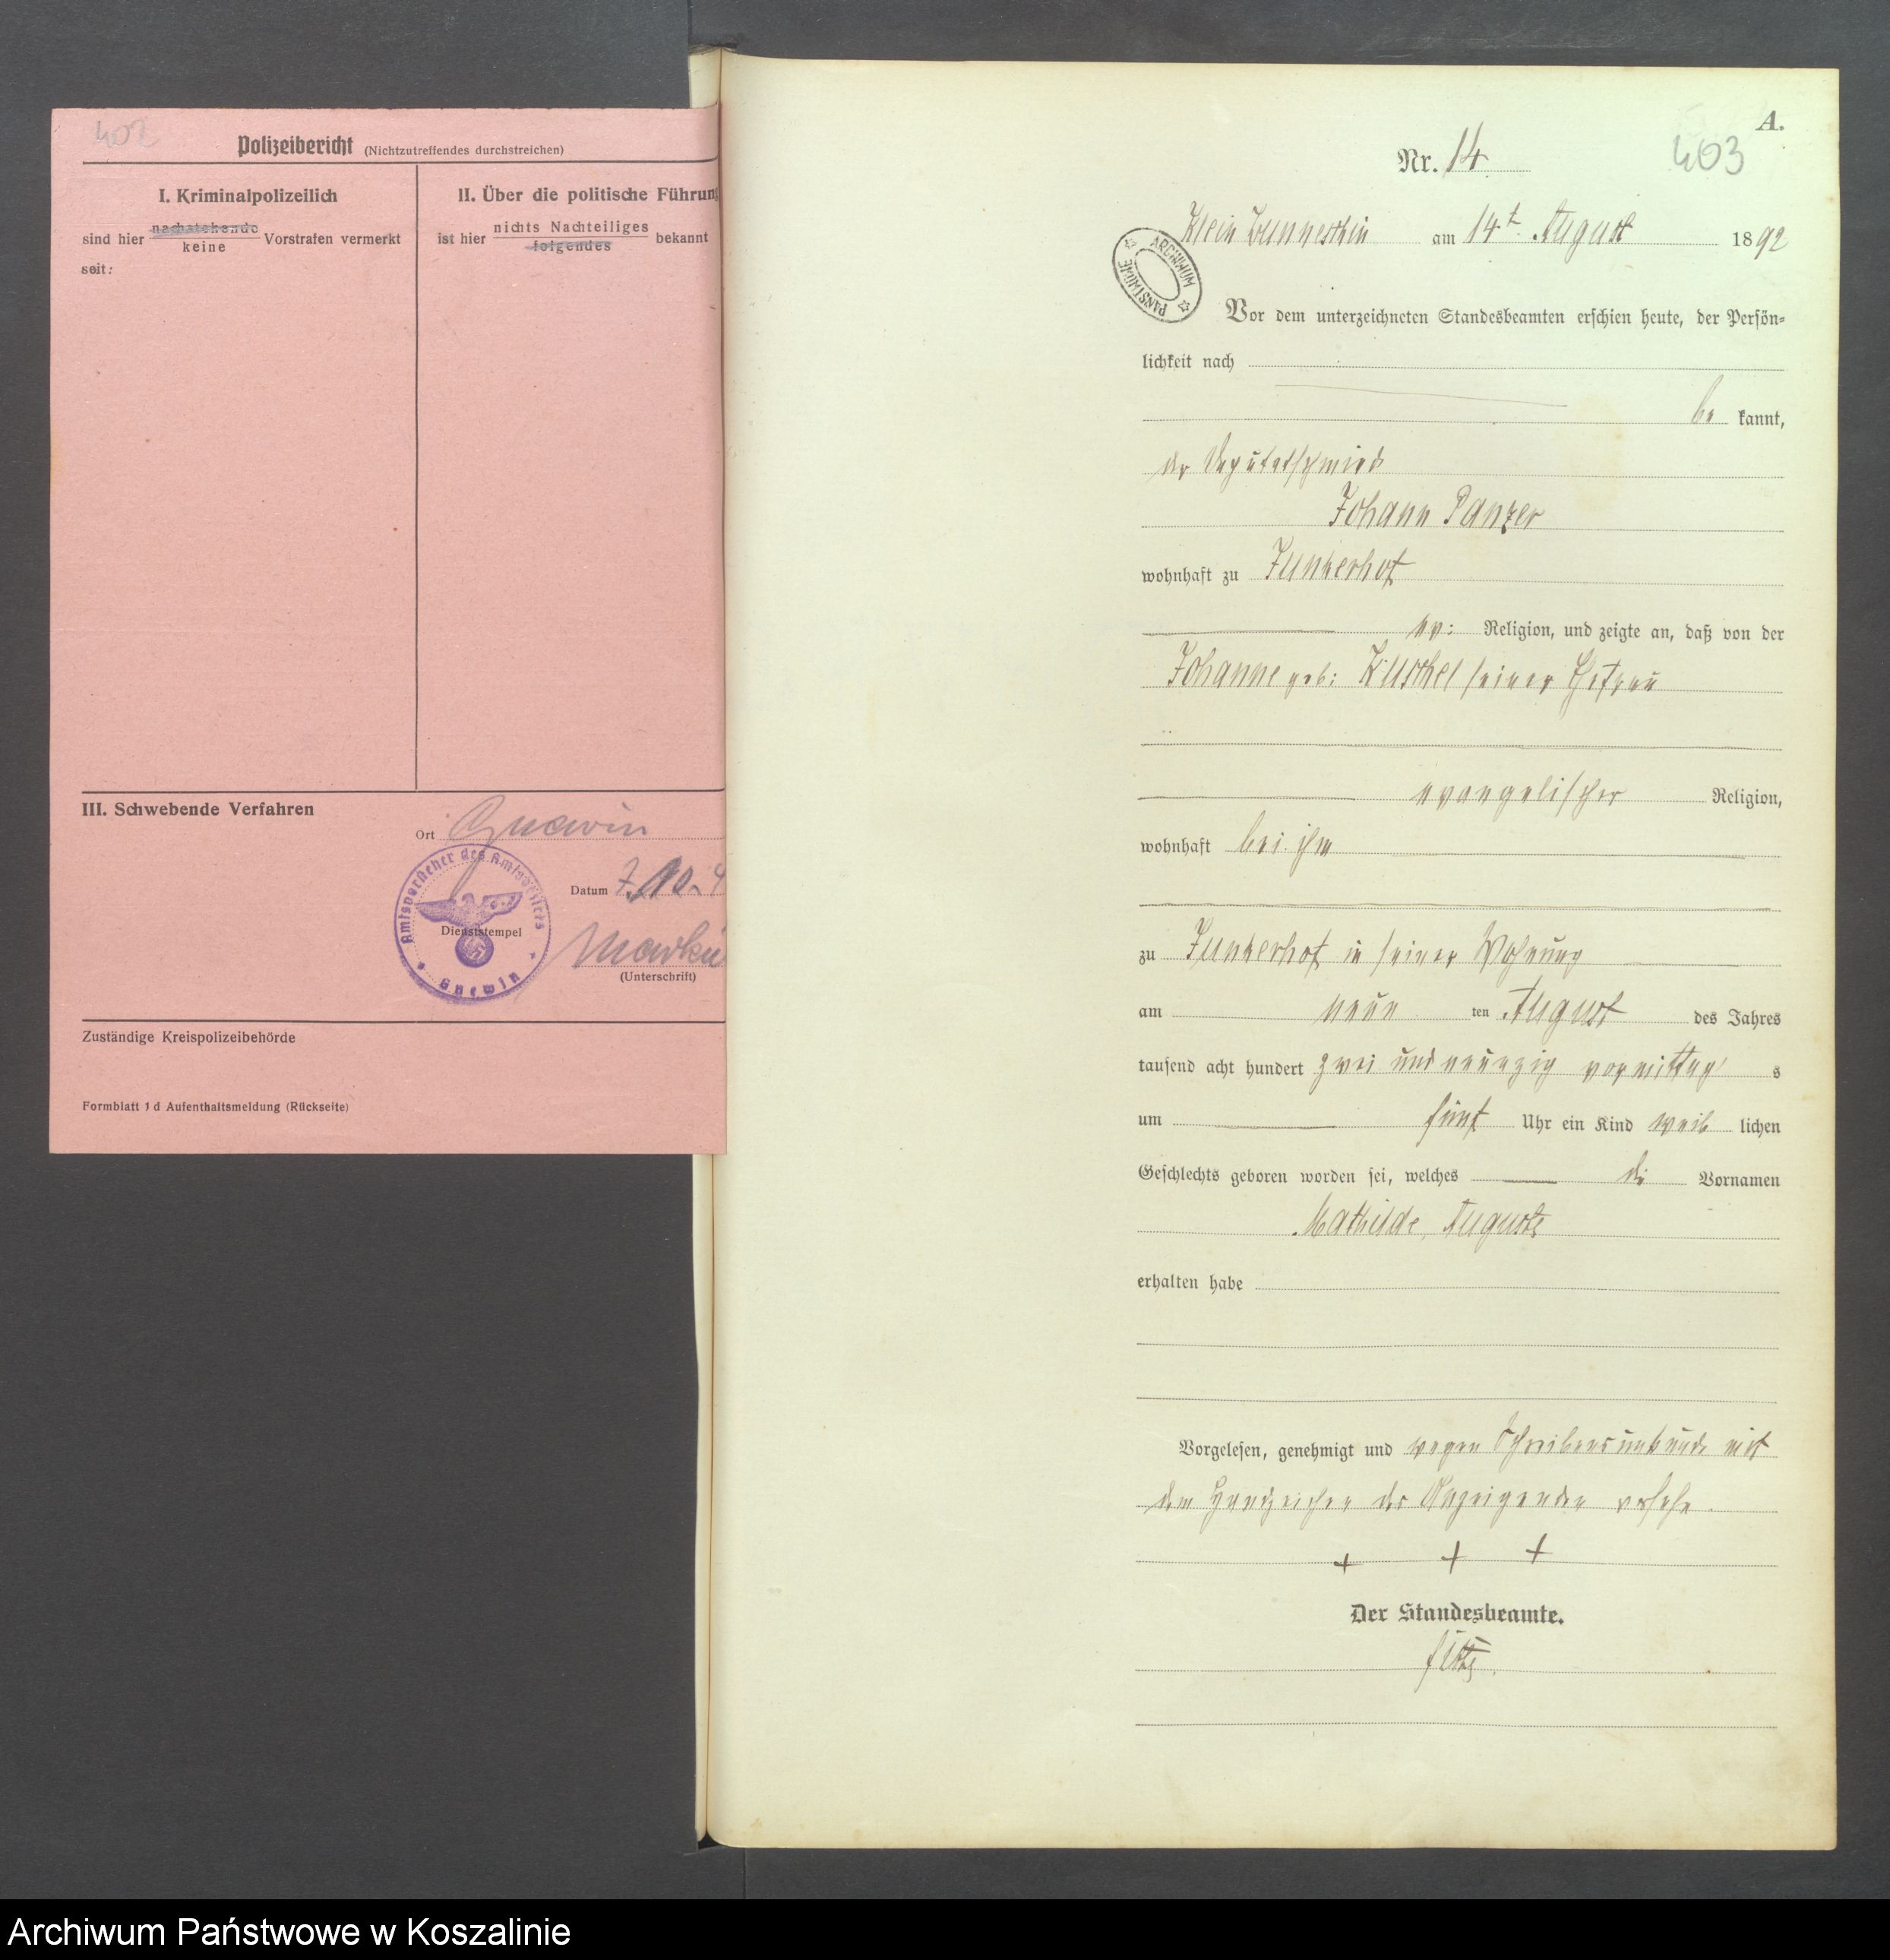 402
Polizeibericht (Nichtzutreffendes durchstreichen)
I. Kriminalpolizeilich
sind hier nachstehende keine Vorstrafen vermerkt
seit:
II. Über die politische Führung
ist hier nichts Nachteiliges folgendes bekannt
III. Schwebende Verfahren
Ort Gnewin
Datum 7.10.4
Amtsvorsteher des Amtsbezirkes
Gnewin
Dienststempel
(Unterschrift)
Zuständige Kreispolizeibehörde
Formblatt 1 d Aufenthaltsmeldung (Rückseite)
A.
403
Nr. 14
Klein am 14t August 1892
ARCHIWUM PAŃSTWOWE
Vor dem unterzeichneten Standesbeamten erschien heute, der Persön-
lichkeit nach
be kannt,
der Deputatschmied
Johann Panzer
wohnhaft zu Junkerhof
ev: Religion, und zeigte an, daß von der
Johanne geb: Kuschel seiner Ehefrau
evangelischer Religion,
wohnhaft bei ihm
zu Junkerhof in seiner Wohnung
am neun ten August des Jahres
tausend acht hundert zwei und neunzig vormittag s
um fünf Uhr ein Kind weib lichen
Geschlechts geboren worden sei, welches die Vornamen
Mathilde, Auguste
erhalten habe
Vorgelesen, genehmigt und wegen Schreibensunkunde mit
dem Handzeichen des Anzeigenden versehn.
+ + +
Der Standesbeamte.
Archiwum Państwowe w Koszalinie